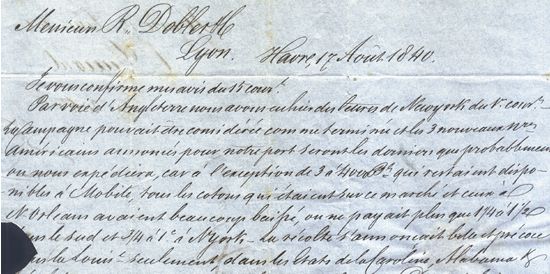 Monsieur R. Dobler H
Lyon. Havre, 17 Août 1840.
Je vous confirme mes avis du 15 cour.t
Par voie d'Angleterre nous avons eu hier des lettres de Newyork du 1.r cour.t
La Campagne pouvait être considérée comme terminée et les 3 nouveaux
américains annoncés pour notre port seront les derniers que probablement
on nous expédiera, car à l'exception de 3 à 4000 B.s qui restaient dispo-
nibles à Mobile, tous les cotons qui étaient sur ce marché et ceux à
N Orleans avaient beaucoup baissé, on ne payait plus que 1/4 à 1/2
le sud et 3/4 à 1 c. à N.york - La récolte s'annonçait belle et précoce
la Louis.e seulement, dans les Etats de la Caroline, Alabama &